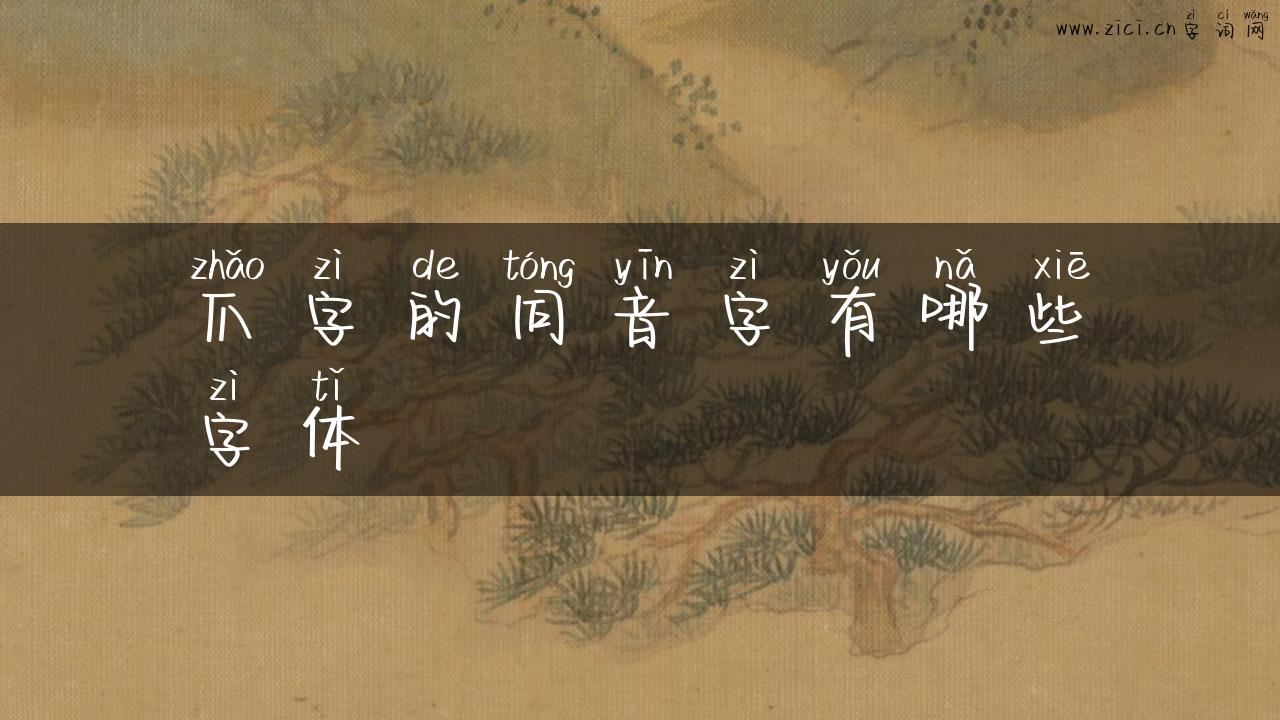 www.zici.cn zì cí wǎng
字 词 网
zhǎo zì de tóng yīn zì yǒu nǎ xiē
爪 字 的 同 音 字 有 哪 些
zì tǐ
字 体